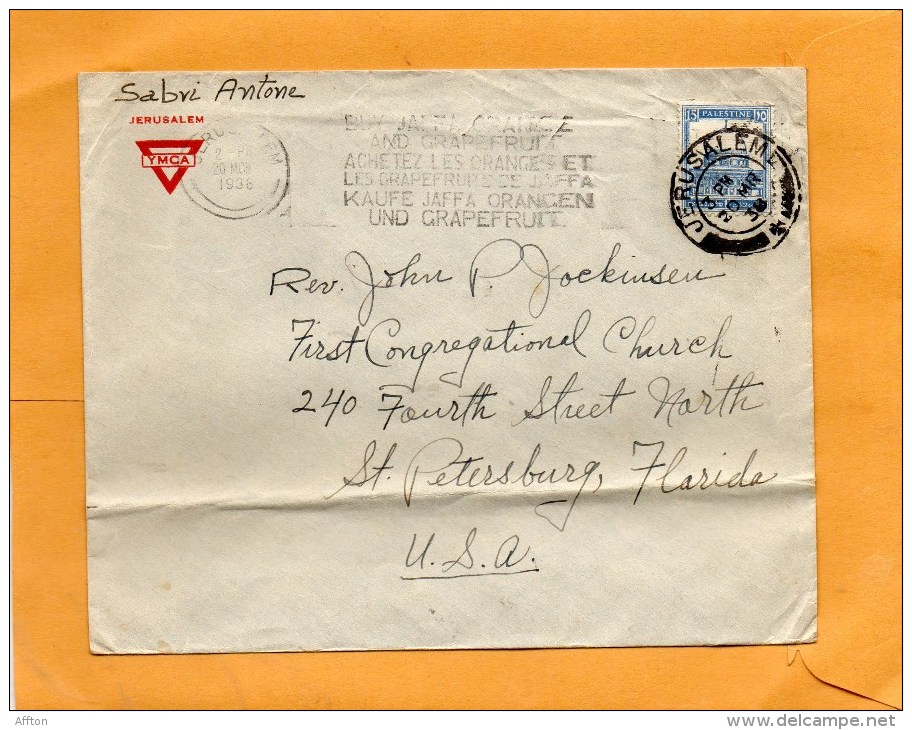 Sabri Antone
JERUSALEM
YMCA
JERUSALEM
20 MCH
1936
BUY JAFFA ORANGE
AND GRAPEFRUIT
ACHETEZ LES ORANGES ET
LES GRAPEFRUITS DE JAFFA
KAUFE JAFFA ORANGEN
UND GRAPEFRUIT
15 PALESTINE ١٥
JERUSALEM
PM
20 MAR
Rev. John P. Jockinsen
First Congregational Church
240 Fourth Street North
St. Petersburg, Florida
U.S.A.
Affton
www.delcampe.net